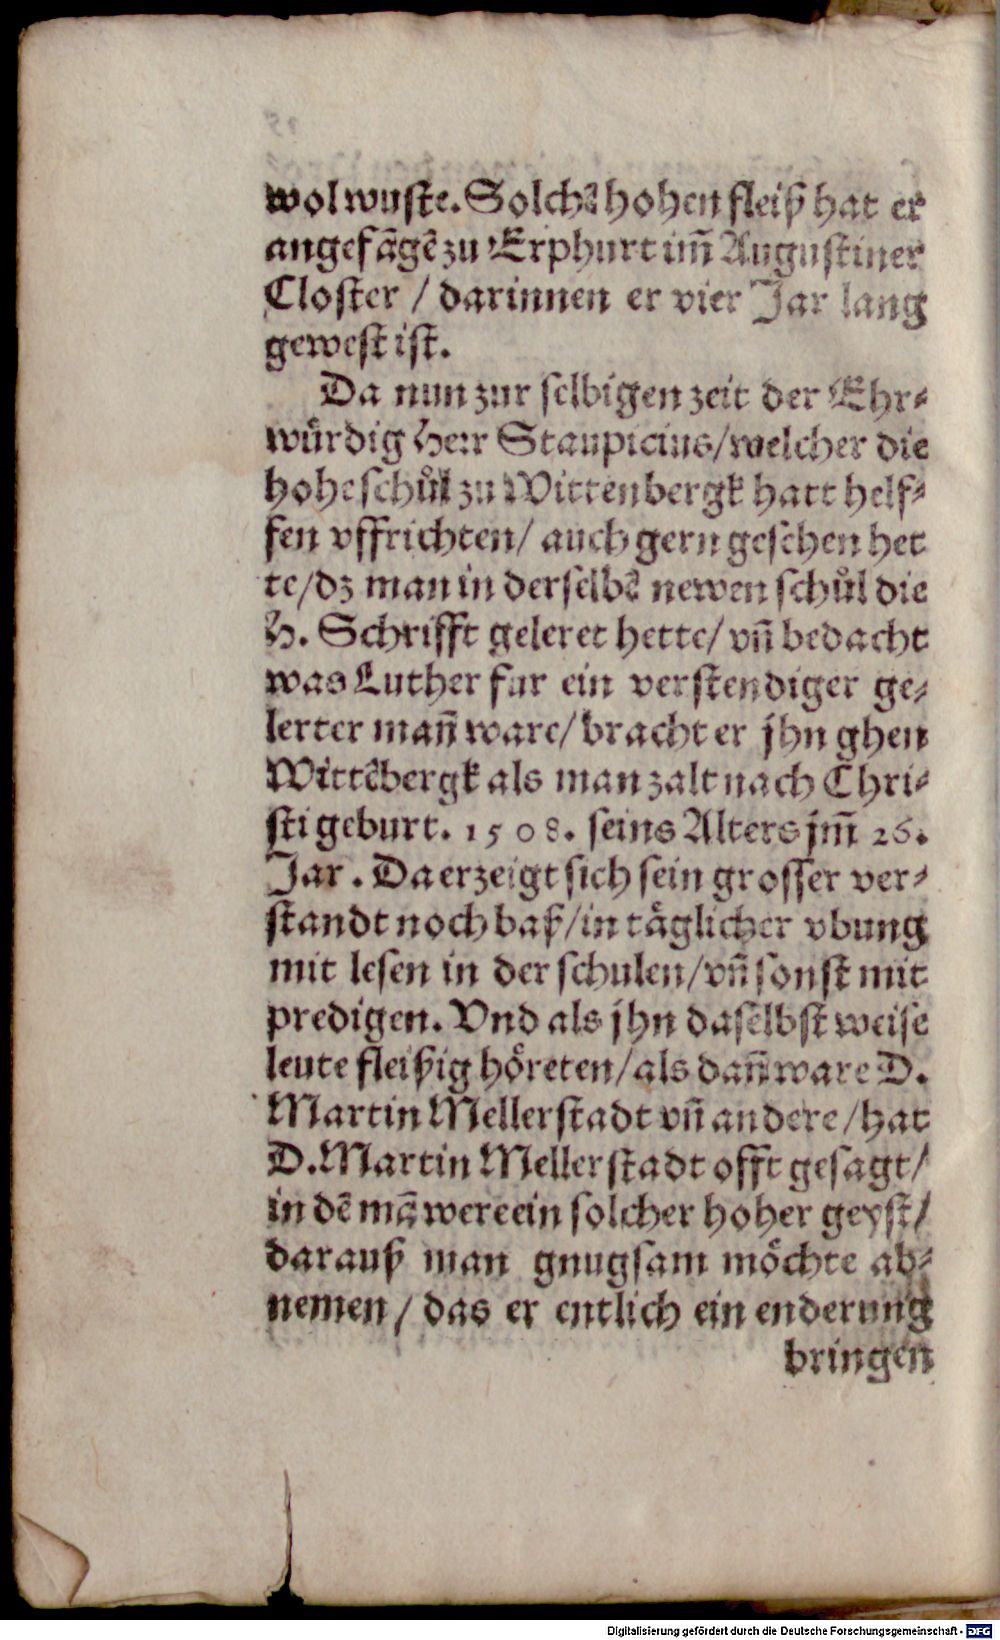 wol wuste. Solchẽ hohen fleiß hat er
angefãgẽ zu Erphurt im̃ Augustiner
Closter / darinnen er vier Jar lang
gewest ist.
Da nun zur selbigen zeit der Ehr⸗
wuͤrdig Herr Staupicius/welcher die
hohe schuͦl zu Wittenbergk hatt helf⸗
fen vffrichten/ auch gern gesehen het
te/dz man in derselbẽ newen schuͦl die
H. Schrifft geleret hette/ vñ bedacht
was Luther fur ein verstendiger ge⸗
lerter mañ ware/ bracht er jhn ghen
Wittẽbergk als man zalt nach Chri⸗
sti geburt. 1508. seins Alters jm̃ 26.
Jar. Da erzeigt sich sein grosser ver⸗
standt noch baß/in taͤglicher vbung
mit lesen in der schulen/vñ sonst mit
predigen. Vnd als jhn daselbst weise
leute fleißig hoͤreten/als dañ ware D.
Martin Mellerstadt vñ andere/hat
D. Martin Mellerstadt offt gesagt/
in dẽ mã were ein solcher hoher geyst/
darauß man gnugsam moͤchte ab⸗
nemen/ das er entlich ein enderung
bringen
Digitalisierung gefördert durch die Deutsche Forschungsgemeinschaft - DFG